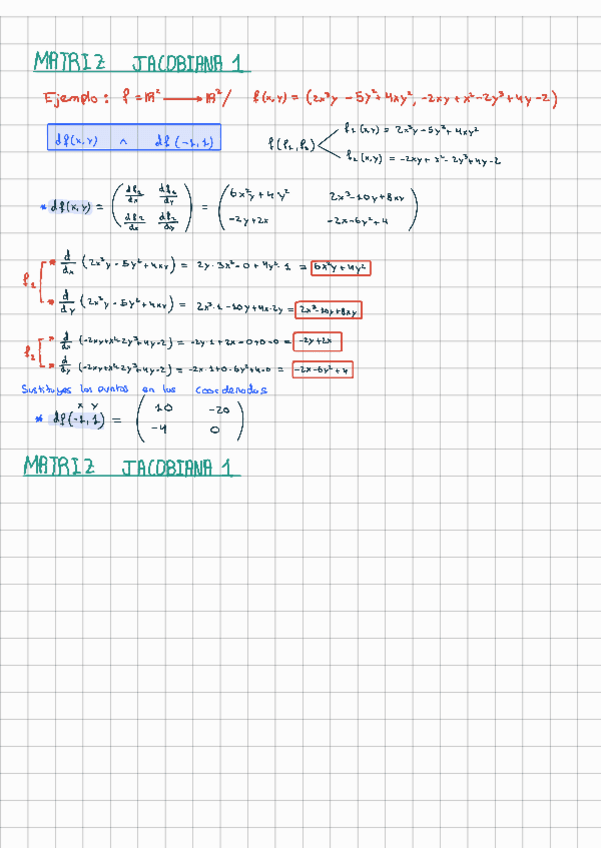 MATRIZ JACOBIANA 1
Ejemplo: f = ℝ² ⟶ ℝ² / f(x,y) = (2x³y - 5y² + 4xy², -2xy + x² - 2y³ + 4y - 2)
df(x,y) ∧ df(-1,1)
f(f₁,f₂) f₁(x,y) = 2x³y - 5y² + 4xy²
f₂(x,y) = -2xy + x² - 2y³ + 4y - 2
* df(x,y) = (df₁/dx df₁/dy = (6x²y + 4y² 2x³ - 10y + 8xy
df₂/dx df₂/dy) -2y + 2x -2x - 6y² + 4)
f₁ * d/dx (2x³y - 5y² + 4xy) = 2y·3x² - 0 + 4y²·1 = 6x²y + 4y²
* d/dy (2x³y - 5y² + 4xy) = 2x³·1 - 10y + 4x·2y = 2x³ - 10y + 8xy
f₂ * d/dx (-2xy + x² - 2y³ + 4y - 2) = -2y·1 + 2x - 0 + 0 - 0 = -2y + 2x
* d/dy (-2xy + x² - 2y³ + 4y - 2) = -2x·1 + 0 - 6y² + 4 - 0 = -2x - 6y² + 4
Sustituyes los puntos en las coordenadas
x y
* df(-1,1) = (10 -20
-4 0)
MATRIZ JACOBIANA 1